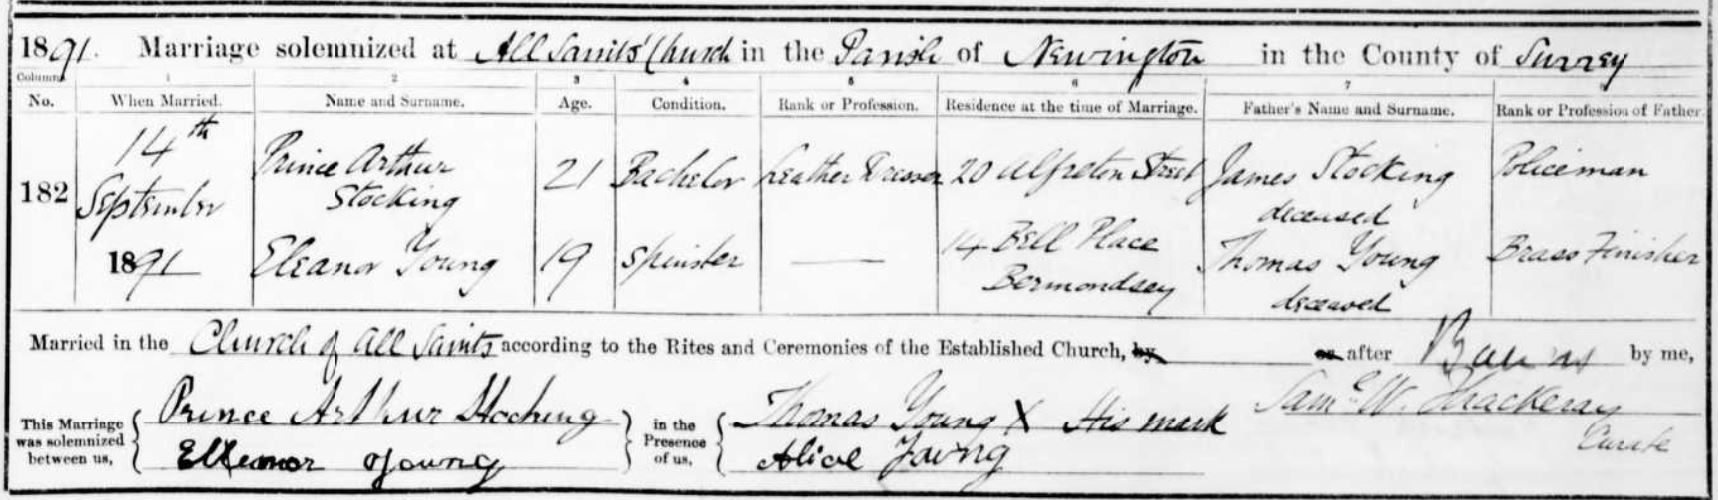 1891. Marriage solemnized at All Saints' Church in the Parish of Newington in the County of Surrey
Columns 1 2 3 4 5 6 7 8
No. When Married. Name and Surname. Age. Condition. Rank or Profession. Residence at the time of Marriage. Father's Name and Surname. Rank or Profession of Father.
182 14th September 1891 Prince Arthur Stocking 21 Bachelor Leather Dresser 20 Alfreton Street James Stocking deceased Policeman
Eleanor Young 19 Spinster — 14 Bell Place Bermondsey Thomas Young deceased Brass Finisher
Married in the Church of All Saints according to the Rites and Ceremonies of the Established Church, by or after Banns by me,
This Marriage was solemnized between us, { Prince Arthur Stocking } in the Presence of us, { Thomas Young X His mark Saml. W. Thackeray
Elleanor Young Alice Young Curate